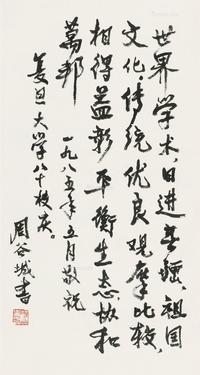 世界学术，日进无疆，祖国
文化，传统优良，观摩比较，
相得益彰，平衡生态，协和
万邦
一九八五年五月敬祝
复旦大学八十校庆。
周谷城书